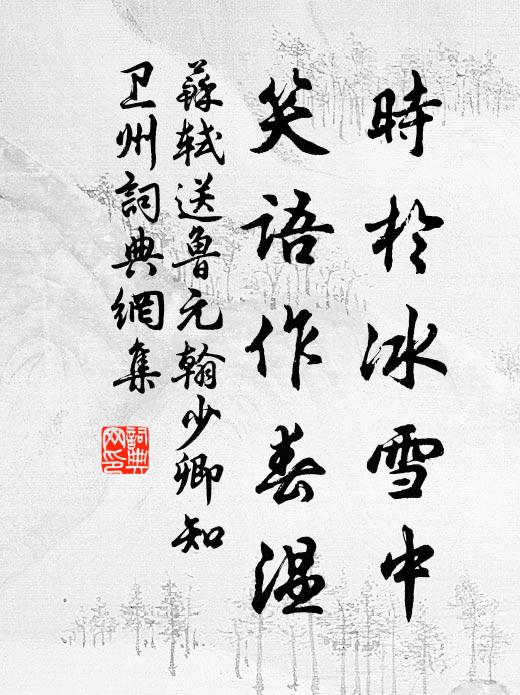 時於冰雪中
笑語作春温
蘇軾送鲁元翰少卿知
卫州詞典網集
詞典
网印